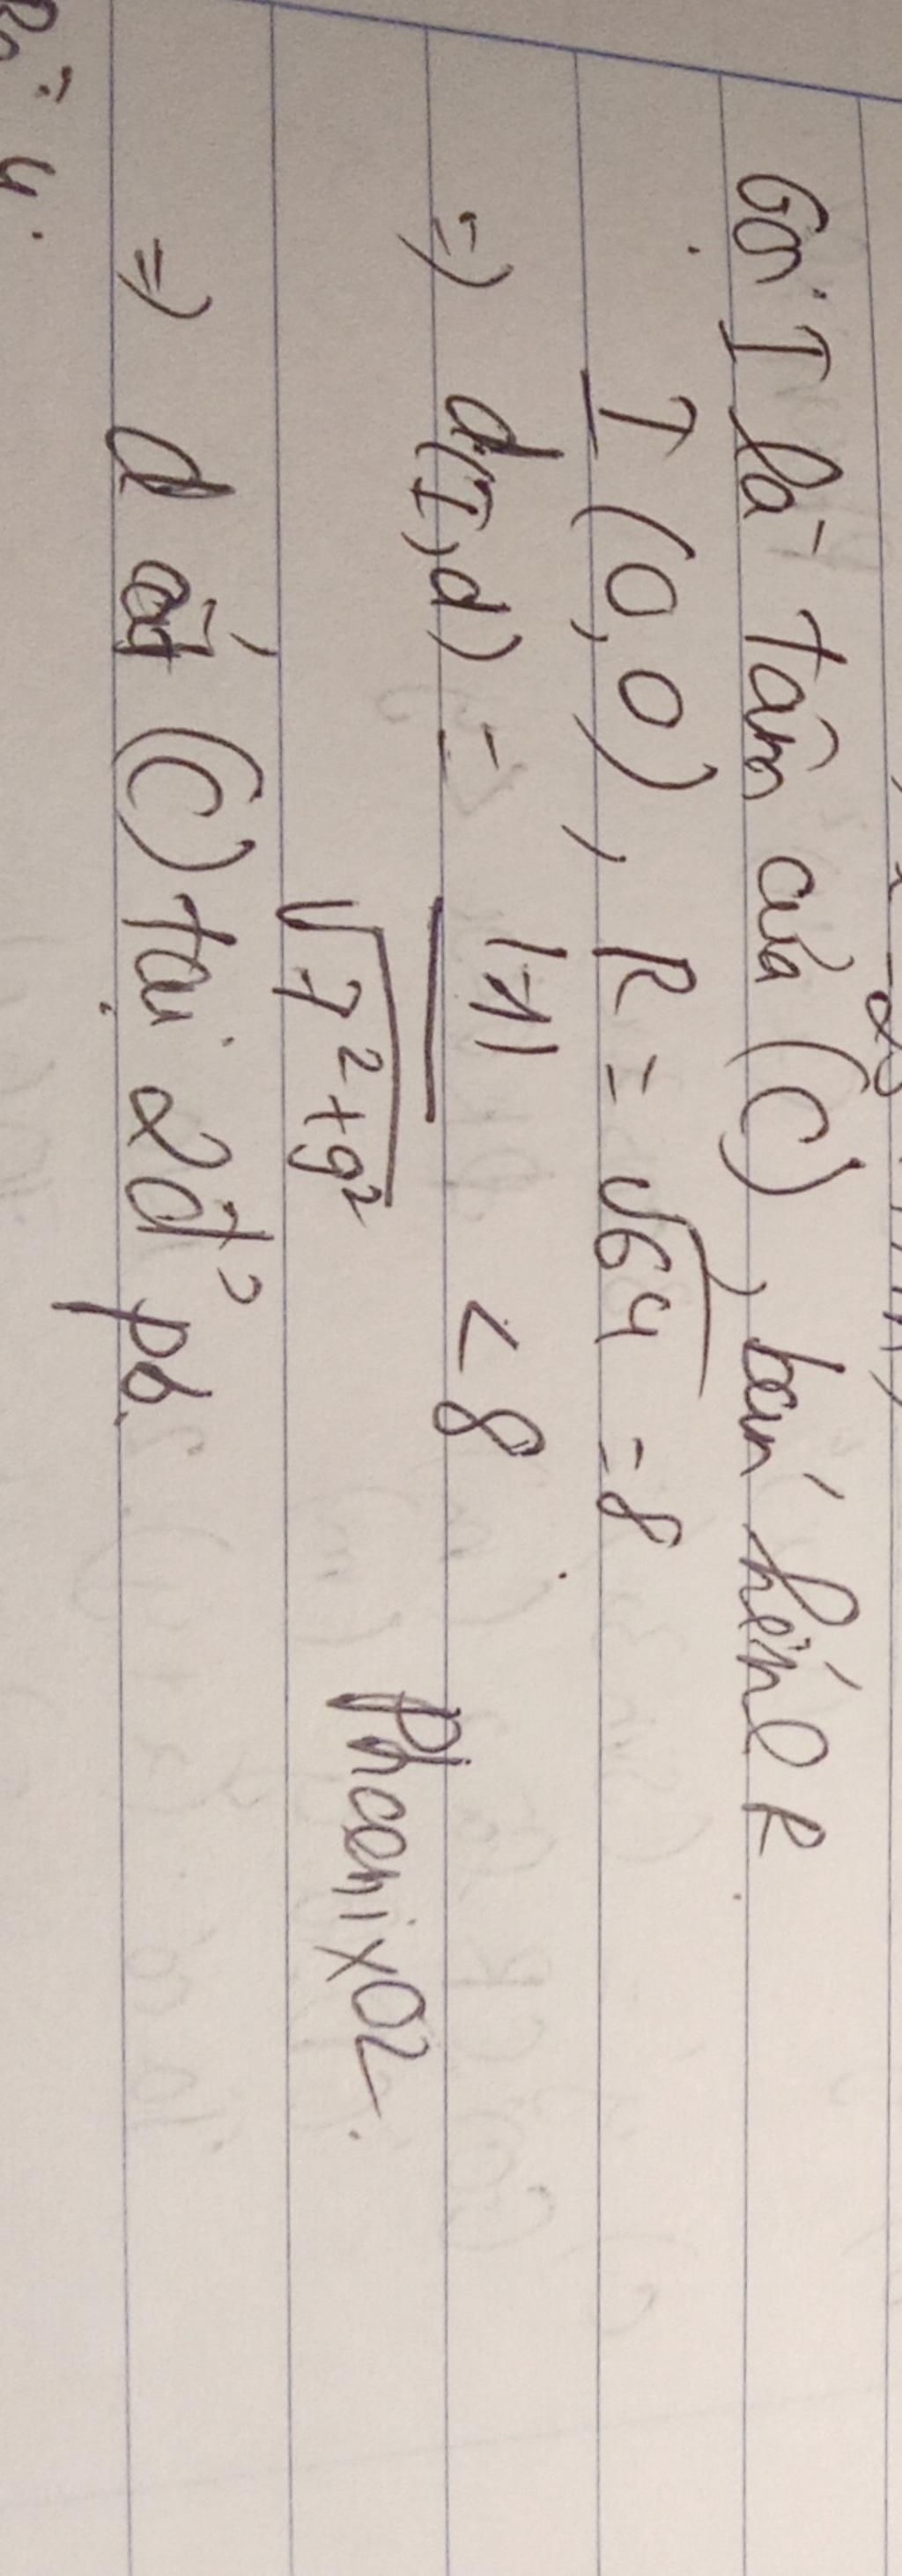 Gọi I là tâm của (C), bán kính R
I (0,0), R = √64 = 8
=> d(I,d) = |-1| / √7² + 9² < 8
Phoenix02.
=> d cắt (C) tại 2đ' pb.